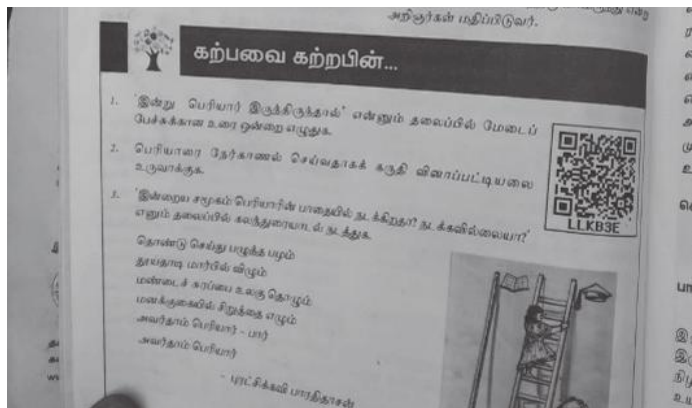 அறிஞர்கள் மதிப்பிடுவர்.
கற்பவை கற்றபின்...
1. 'இன்று பெரியார் இருந்திருந்தால்' என்னும் தலைப்பில் மேடைப்
பேச்சுக்கான உரை ஒன்றை எழுதுக.
2. பெரியாரை நேர்காணல் செய்வதாகக் கருதி வினாப்பட்டியலை
உருவாக்குக.
3. 'இன்றைய சமூகம் பெரியாரின் பாதையில் நடக்கிறதா? நடக்கவில்லையா?'
எனும் தலைப்பில் கலந்துரையாடல் நடத்துக.
LLKB3E
தொண்டு செய்து பழுத்த பழம்
தூயதாடி மார்பில் விழும்
மண்டைச் சுரப்பை உலகு தொழும்
மனக்குகையில் சிறுத்தை எழும்
அவர்தாம் பெரியார் - பார்
அவர்தாம் பெரியார்
- புரட்சிக்கவி பாரதிதாசன்